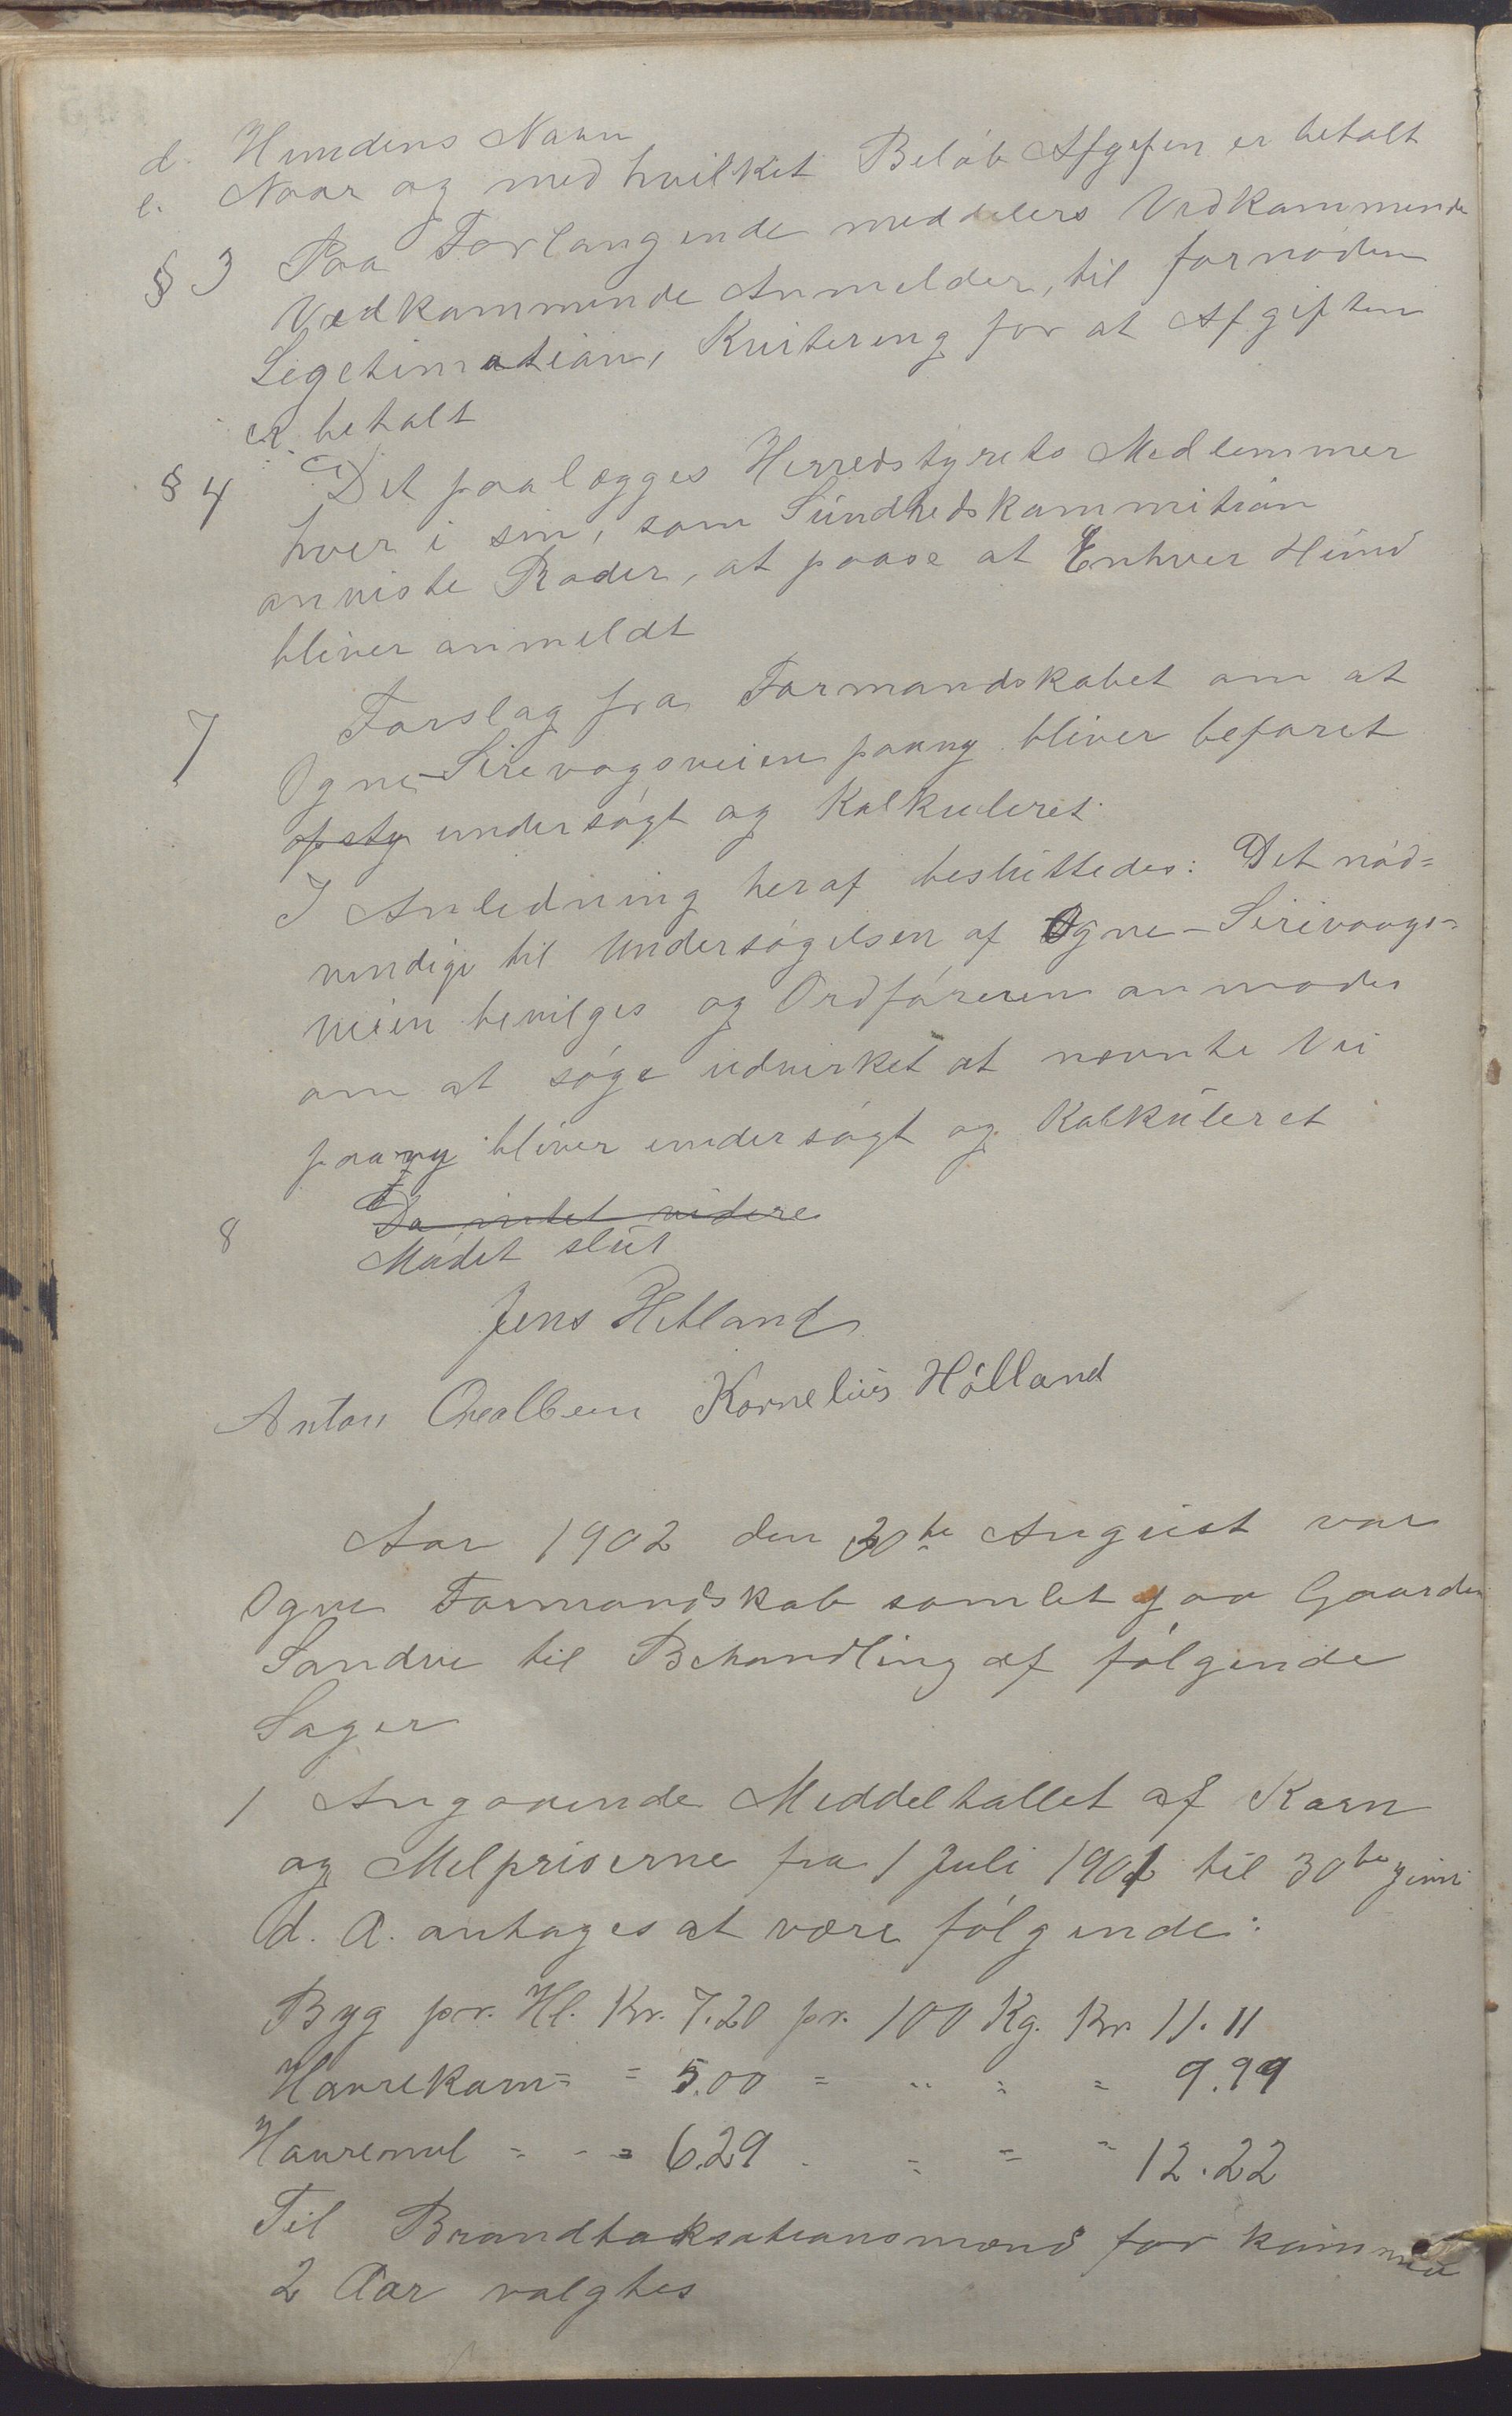 d. Hundens Navn
e. Naar og med hvilket Beløb Afgifen er betalt
§ 3 Paa Forlangende meddelers Vedkommende
Vedkommende Anmelder, til fornøden
Legetimation, Kvitering for at Afgiften
er betalt
§ 4 Det paalægges Herredstyrets Medlemmer
hver i sin, som Sundhedskommition
anviste Roder, at paase at Enhver Hund
bliver anmeldt
7 Forslag fra Formandskabet om at
Ogne-Sirevogsveien paany bliver befaret
opsty undersøgt og Kalkuleret.
I Anledning heraf besluttedes: Det nød=
vendige til Undersøgelsen af Ogne-Sirevaags-
veien bevilges og Ordføreren anmodes
om at søge udvirket at nævnte Vei
paany bliver undersøgt og Kalkuleret
8 Da intet videre
Mødet slut
Jens Hetland
Anton Kornelius Hølland
Aar 1902 den 30te August var
Ogne Formandskab samlet paa Gaarden
Sandve til Behandling af følgende
Sager
1 Angaaende Meddeltallet af Korn
og Melpriserne fra 1 Juli 1901 til 30te Juni
d. A. antages at være følgende:
Byg pr. Hl. Kr. 7.20 pr. 100 Kg. Kr. 11.11
Havrekorn = = 5.00 = " = = 9.99
Havremel = - = 6.29 . = = = 12.22
Til Brandtaksationsmænd for kommende
2 Aar valgtes